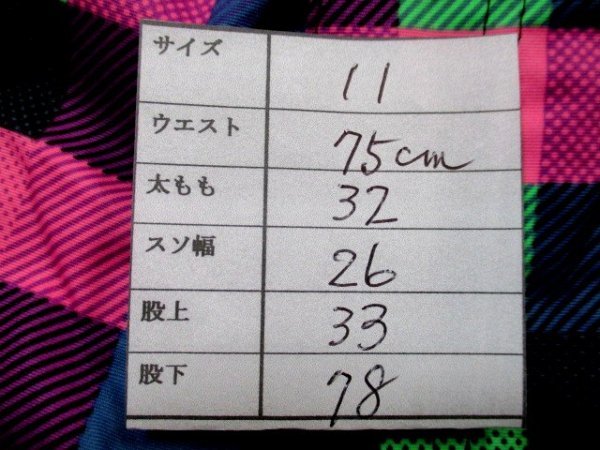 サイズ 11
ウエスト 75cm
太もも 32
スソ幅 26
股上 33
股下 78